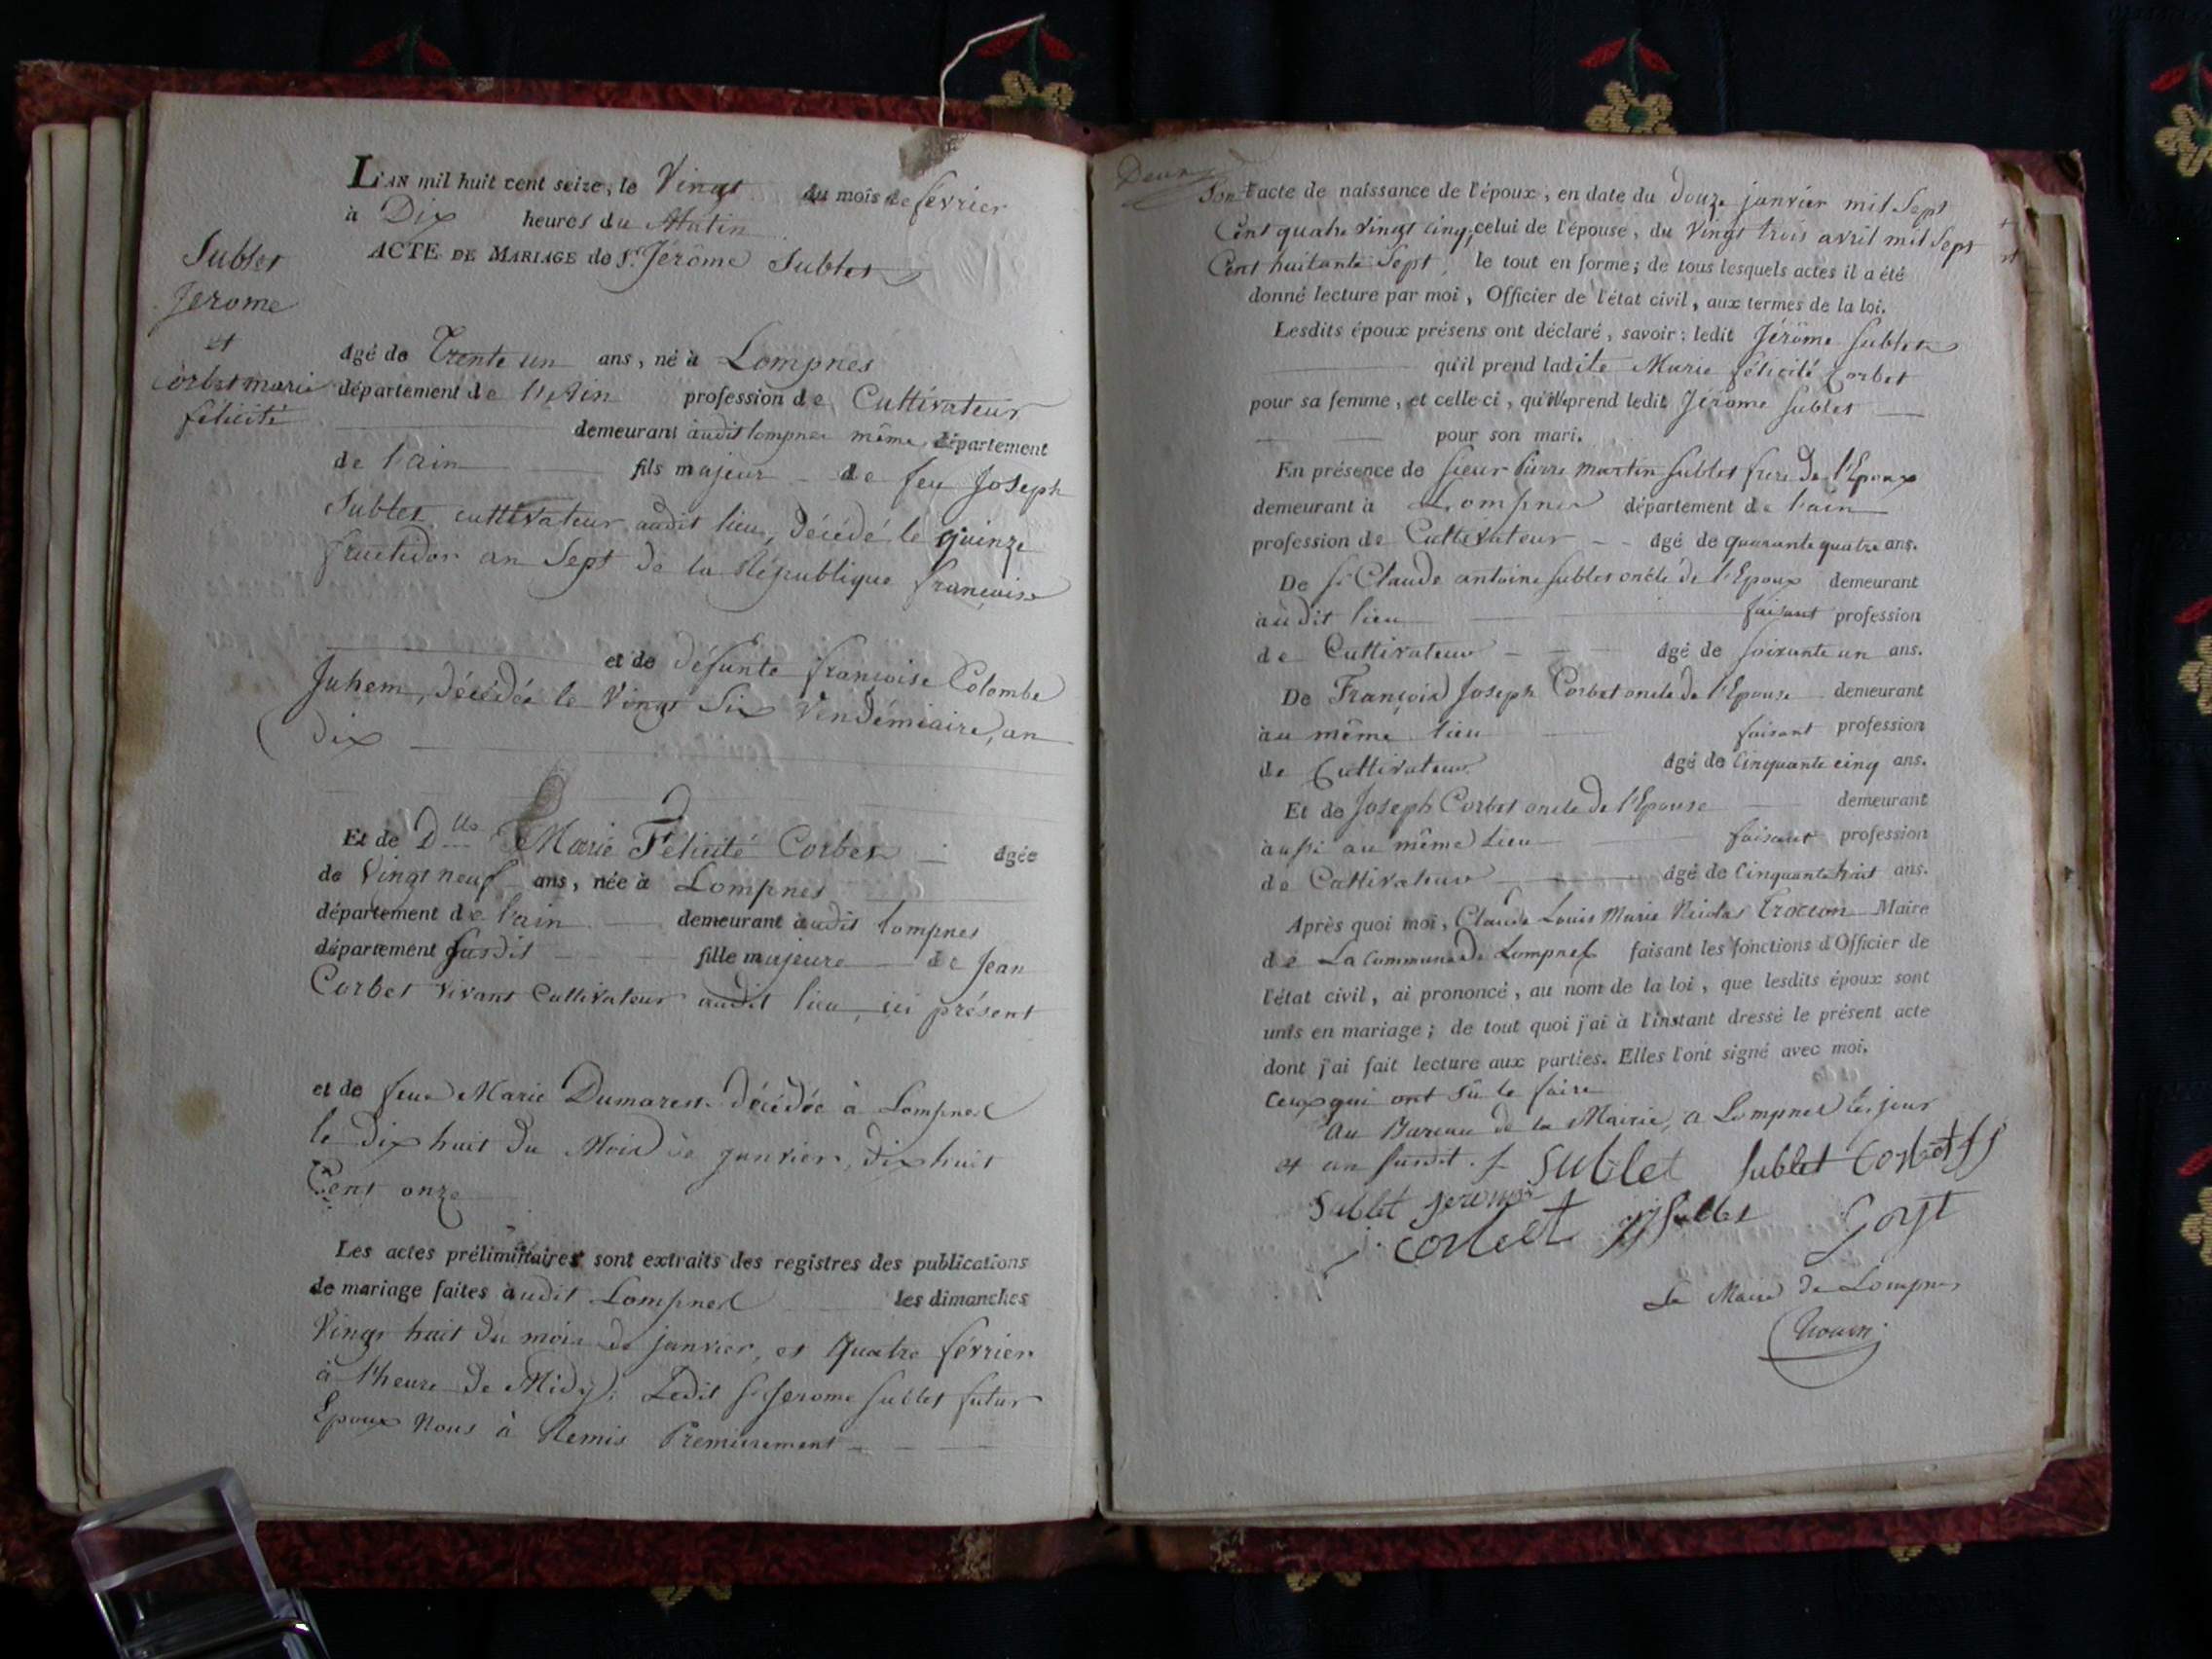 L'AN mil huit cent seize, le Vingt du mois de février
à Dix heures du Matin
ACTE DE MARIAGE de Sr. Jérôme Sublet
Sublet
Jerome
et
Corbet marie
félicité
âgé de Trente un ans, né à Lompnes
département de l'Ain profession de Cultivateur
demeurant audit lompnes même département
de l'ain fils majeur de feu Joseph
Sublet cultivateur audit lieu, décédé le quinze
fructidor an Sept de la République françoise
et de défunte françoise Colombe
Juhem, décédée le Vingt Six Vendémiaire, an
dix
Et de Dlle Marie Félicité Corbet âgée
de Vingt neuf ans, née à Lompnes
département de l'ain demeurant audit lompnes
département susdit fille majeure de Jean
Corbet vivant Cultivateur audit lieu, ici présent
et de feue Marie Dumarest décédée à Lompnes
le dix huit du Mois de janvier, dix huit
Cent onze
Les actes préliminaires sont extraits des registres des publications
de mariage faites audit Lompnes les dimanches
Vingt huit du mois de janvier, et Quatre février
à l'heure de Midy; Ledit Sr Jerome Sublet futur
Epoux Nous à Remis Premierement
Son l'acte de naissance de l'époux, en date du douze janvier mil Sept
Cent quatre vingt cinq, celui de l'épouse, du Vingt trois avril mil Sept
Cent huitante Sept, le tout en forme; de tous lesquels actes il a été
donné lecture par moi, Officier de l'état civil, aux termes de la loi.
Lesdits époux présens ont déclaré, savoir: ledit Jérôme Sublet
qu'il prend ladite Marie félicité Corbet
pour sa femme, et celle-ci, qu'elle prend ledit Jérome Sublet
pour son mari.
En présence de Sieur Pierre Martin Sublet frere de l'Epoux
demeurant à Lompnes département de l'ain
profession de Cultivateur âgé de quarante quatre ans.
De Sr Claude antoine Sublet oncle de l'Epoux demeurant
audit lieu faisant profession
de Cultivateur âgé de soixante un ans.
De François Joseph Corbet oncle de l'Epouse demeurant
au même lieu faisant profession
de Cultivateur âgé de Cinquante cinq ans.
Et de Joseph Corbet oncle de l'Epouse demeurant
aussi au même lieu faisant profession
de Cultivateur âgé de Cinquante huit ans.
Après quoi moi, Claude Louis Marie Nicolas Troccon Maire
de La Commune de Lompnes faisant les fonctions d'Officier de
l'état civil, ai prononcé, au nom de la loi, que lesdits époux sont
unis en mariage; de tout quoi j'ai à l'instant dressé le présent acte
dont j'ai fait lecture aux parties. Elles l'ont signé avec moi.
Ceux qui ont Sû le faire
Au Bureau de la Mairie, a Lompnes les jour
et an susdit. Sublet Sublet Corbet
Sublet jerome
corbet Sublet
Le Maire de Lompnes